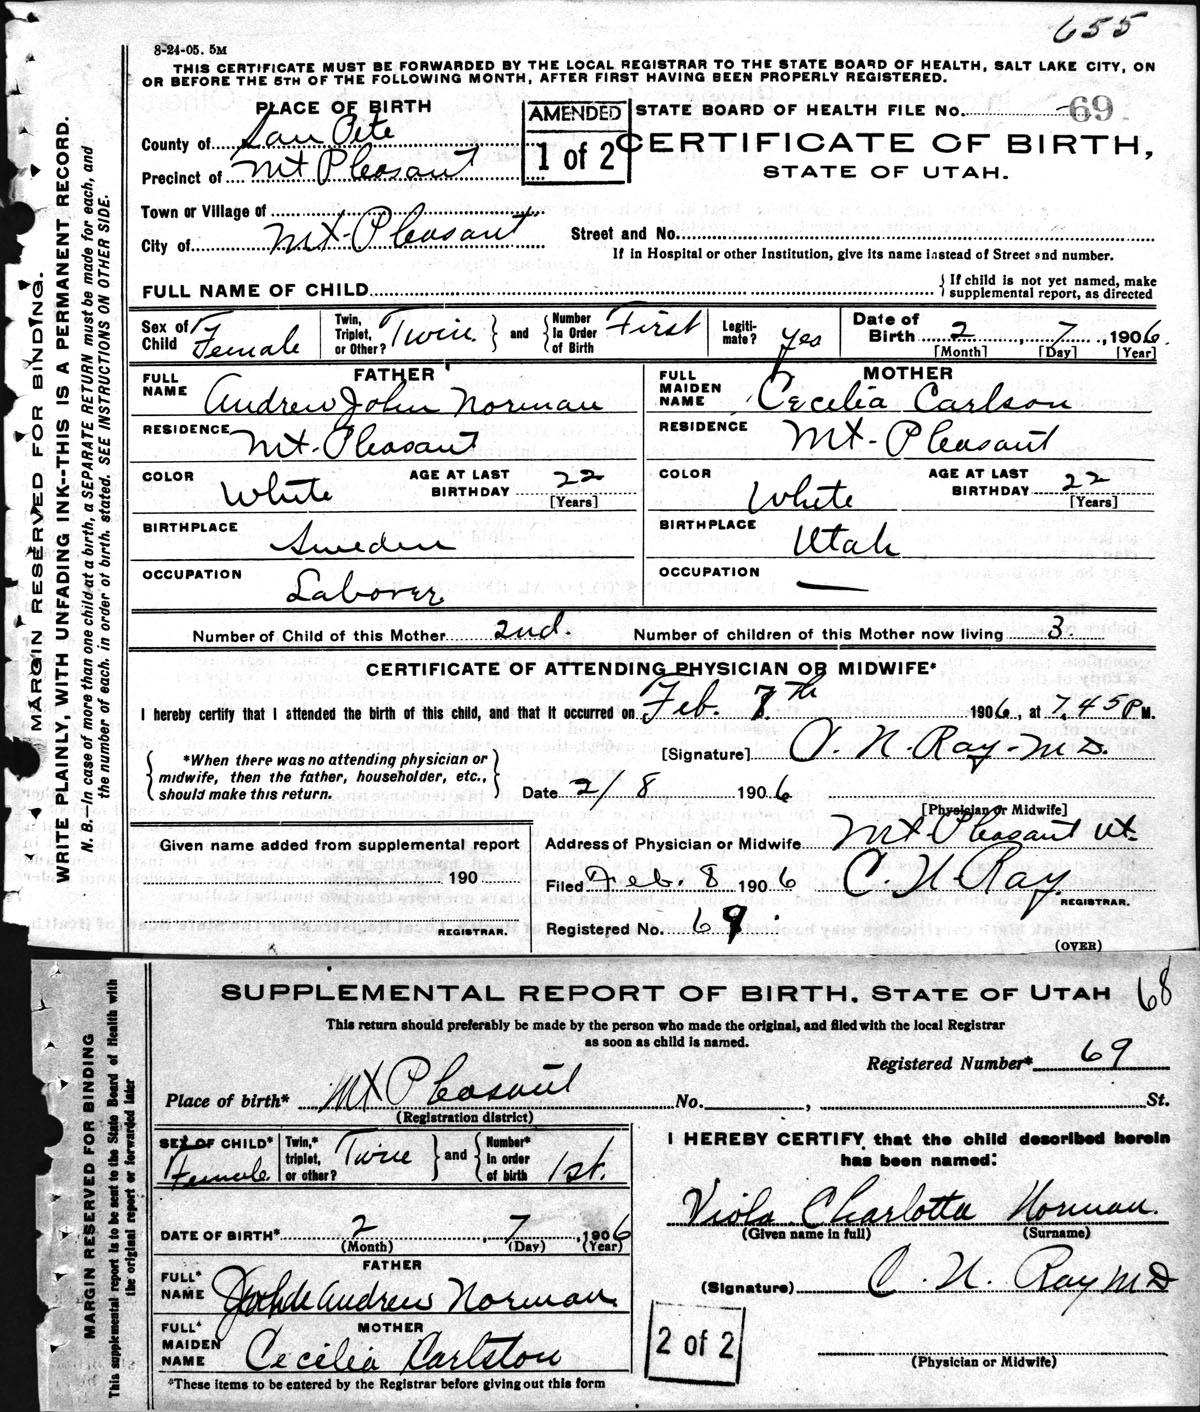 655
8-24-05. 5M
THIS CERTIFICATE MUST BE FORWARDED BY THE LOCAL REGISTRAR TO THE STATE BOARD OF HEALTH, SALT LAKE CITY, ON
OR BEFORE THE 5TH OF THE FOLLOWING MONTH, AFTER FIRST HAVING BEEN PROPERLY REGISTERED.
PLACE OF BIRTH
AMENDED
1 of 2
STATE BOARD OF HEALTH FILE No. 69
CERTIFICATE OF BIRTH,
STATE OF UTAH.
County of San Pete
Precinct of Mt Pleasant
Town or Village of
City of Mt-Pleasant
Street and No.
If in Hospital or other Institution, give its name instead of Street and number.
FULL NAME OF CHILD
{ If child is not yet named, make
supplemental report, as directed
Sex of Child Female
Twin, Triplet, or Other? Twin } and { Number In Order of Birth First
Legitimate? yes
Date of Birth 2, 7, 1906.
[Month] [Day] [Year]
FATHER
FULL NAME Andrew John Norman
RESIDENCE Mt-Pleasant
COLOR White
AGE AT LAST BIRTHDAY 22
[Years]
BIRTHPLACE Sweden
OCCUPATION Laborer
MOTHER
FULL MAIDEN NAME Cecilia Carlson
RESIDENCE Mt-Pleasant
COLOR White
AGE AT LAST BIRTHDAY 22
[Years]
BIRTHPLACE Utah
OCCUPATION —
Number of Child of this Mother 2nd. Number of children of this Mother now living 3.
CERTIFICATE OF ATTENDING PHYSICIAN OR MIDWIFE*
I hereby certify that I attended the birth of this child, and that it occurred on Feb. 7th 1906, at 7.45 P M.
*When there was no attending physician or
midwife, then the father, householder, etc.,
should make this return.
[Signature] O. N. Ray-M D.
Date 2/8 1906
[Physician or Midwife]
Given name added from supplemental report
190
REGISTRAR.
Address of Physician or Midwife Mt Pleasant Ut.
Filed Feb. 8 1906 C. N. Ray.
REGISTRAR.
Registered No. 69.
(OVER)
MARGIN RESERVED FOR BINDING.
WRITE PLAINLY, WITH UNFADING INK--THIS IS A PERMANENT RECORD.
N. B.—In case of more than one child at a birth, a SEPARATE RETURN must be made for each, and
the number of each, in order of birth, stated. SEE INSTRUCTIONS ON OTHER SIDE.
SUPPLEMENTAL REPORT OF BIRTH. STATE OF UTAH
68
This return should preferably be made by the person who made the original, and filed with the local Registrar
as soon as child is named.
Registered Number* 69
Place of birth* Mt Pleasant No. , St.
(Registration district)
SEX OF CHILD* Female
Twin,* triplet, or other? Twin } and { Number* In order of birth 1st.
DATE OF BIRTH* 2, 7, 1906
(Month) (Day) (Year)
FATHER
FULL* NAME Andrew Norman
MOTHER
FULL* MAIDEN NAME Cecilia Carlston
*These items to be entered by the Registrar before giving out this form
I HEREBY CERTIFY that the child described herein
has been named:
Viola Charlotta Norman.
(Given name in full) (Surname)
(Signature) C. N. Ray M D
2 of 2
(Physician or Midwife)
MARGIN RESERVED FOR BINDING
This supplemental report is to be sent to the State Board of Health with
the original report or forwarded later